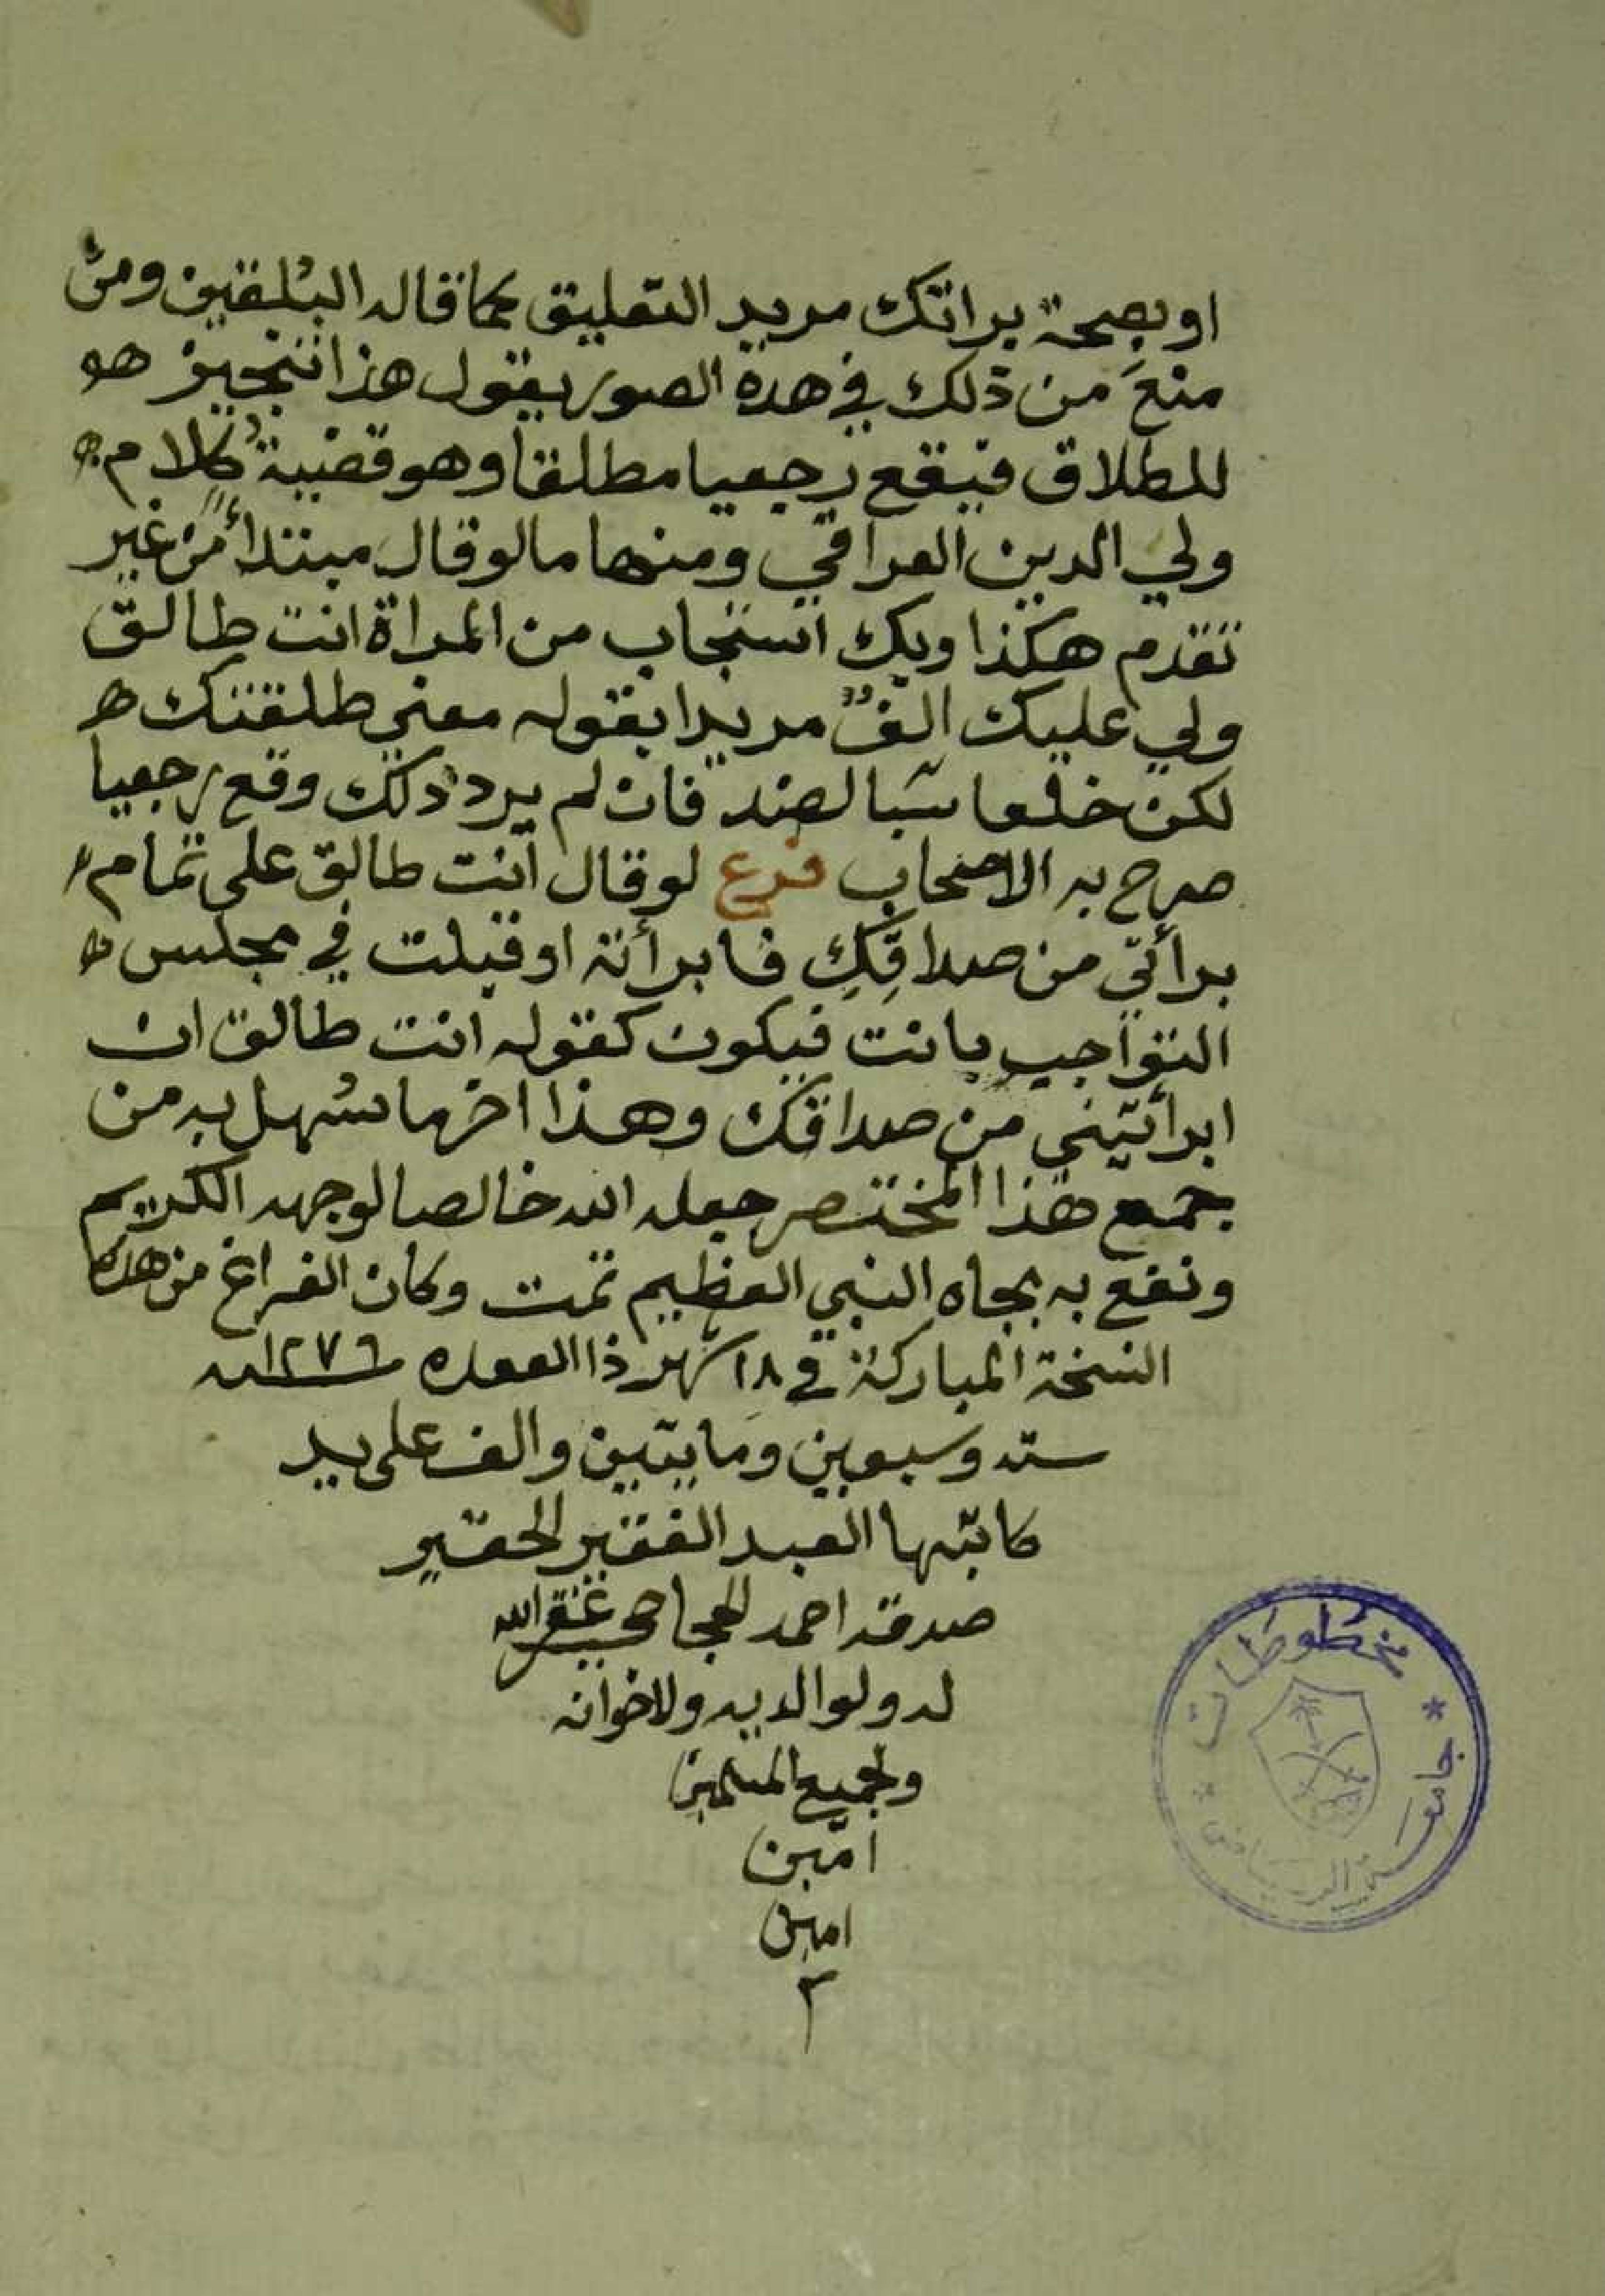 او بصحة براتك مريد التعليق كما قاله البلقين ومن
منع من ذلك في هذه الصور يقول هذا تنجيز هو
للطلاق فيقع رجعيا مطلقا وهو قضية كلام
ولي الدين العراقي ومنها ما لو قال مبتدأ من غير
تقدم هكذا ويك استجاب من المراة انت طالق
ولي عليك الف مريدا بقوله معني طلقتك
لكن خلعا فان لم يرد ذلك وقع رجعيا
صرح به الاصحاب فرع لو قال انت طالق على تمام
برأتي من صداقك فابرأته او قبلت في مجلس
التواجب بانت فيكون كقوله انت طالق ان
ابرأتيني من صداقك وهذا اخر ما سهل به من
جمع هذا المختصر جعله الله خالصا لوجهه الكريم
ونفع به بجاه النبي العظيم تمت وكان الفراغ من هذه
النسخة المباركة في ١٨ شهر ذا القعده سنة ١٢٧٦
سته وسبعين ومايتين والف على يد
كاتبها العبد الفقير الحقير
صدقه احمد الحجاجي غفر الله
له ولوالديه ولاخوانه
ولجميع المسلمين
امين
امين
م
مخطوطات
جامعة الرياض